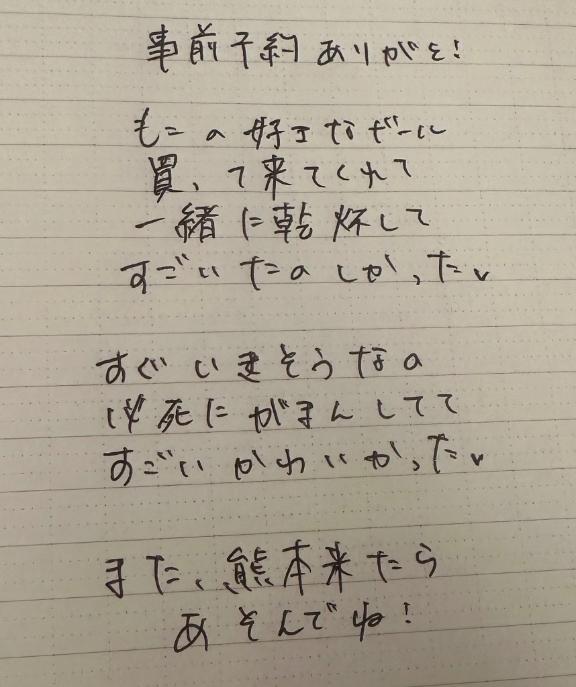 事前予約ありがと!
もこの好きなビール
買って来てくれて
一緒に乾杯して
すごいたのしかったv
すぐいきそうなの
必死にがまんしてて
すごいかわいかったv
また、熊本来たら
あそんでね!